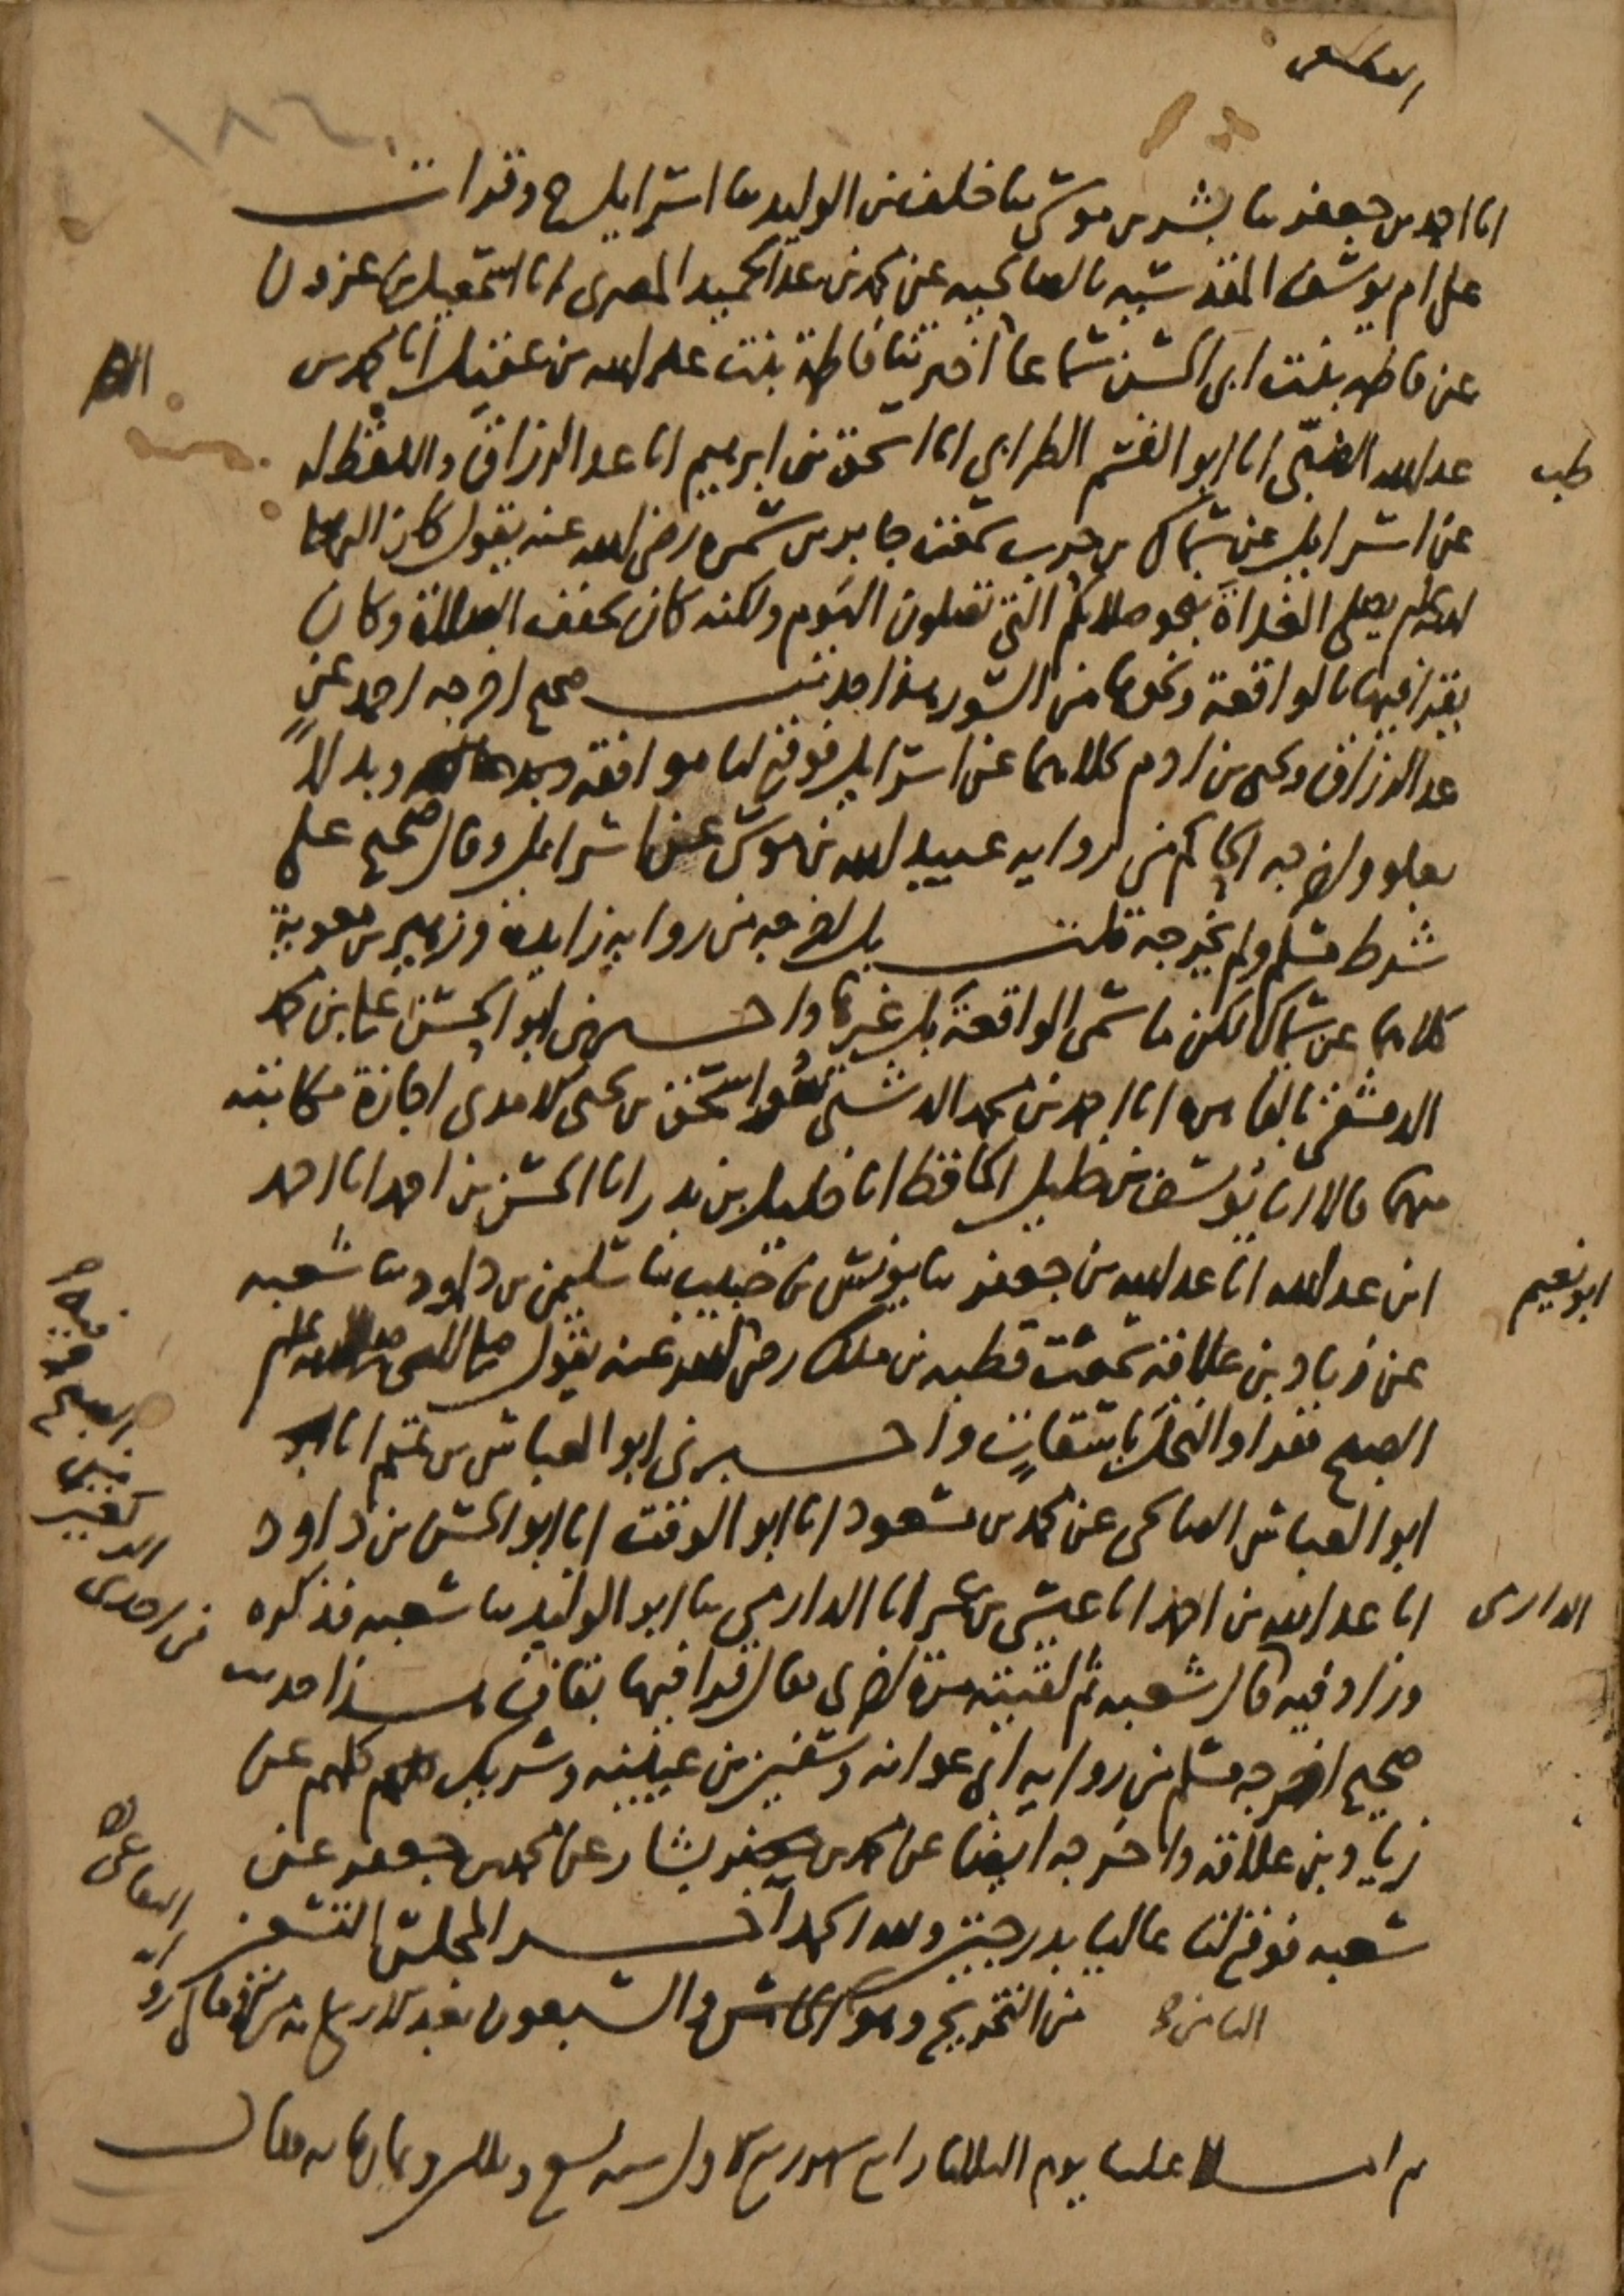 ١٨٦
انا احمد بن جعفر ثنا بشر بن موسى ثنا خلف بن الوليد ثنا اسرايل ح وقرات
على ام يوسف المقدسية بالصالحية عن محمد بن عبد الحميد المصرى انا اسمعيل بن عزون
عن فاطمة بنت ابى الحسن سماعا اخبرتنا فاطمة بنت عبد الله بن عقيل انا محمد بن
عبد الله الضبى انا ابو القسم الطبرانى انا اسحق بن ابرهيم انا عبد الرزاق واللفظ له
طب
عن اسرايل عن سماك بن حرب سمعت جابر بن سمره رضى الله عنه يقول كان النبى صلى
الله عليه وسلم يصلى الغداة نحو صلاتكم التى تصلون اليوم ولكنه كان يخفف الصلاة وكان
يقرا فيها بالواقعة ونحوها من السور هذا حديث صحيح اخرجه احمد عن
عبد الرزاق ويحيى بن ادم كلاهما عن اسرايل فوقع لنا موافقة وبدلا
بعلو واخرجه الحاكم من رواية عبيد الله بن موسى عن اسرايل وقال صحيح على
شرط مسلم ولم يخرجه قلت بل اخرجه من رواية زايدة وزهير بن معوية
كلاهما عن سماك لكن ما سمى الواقعة بل غيرها واخبرنى ابو الحسن على بن محمد
الدمشقى بالقاهرة انا احمد بن محمد الدشتى واسحق بن يحيى الامدى اجازة مكاتبة
منهما قالا انا يوسف بن خليل الحافظ انا خليل بن بدر انا الحسن بن احمد انا احمد
ابن عبد الله انا عبد الله بن جعفر ثنا يونس بن حبيب ثنا سليمن بن داود ثنا شعبه
ابو نعيم
عن زياد بن علاقة سمعت قطبه بن ملك رضى الله عنه يقول صلى النبى صلى الله عليه وسلم
الصبح فقرا والنخل باسقات واخبرنى ابو العباس بن تميم انا
ابو العباس الصالحى عن محمد بن مسعود انا ابو الوقت انا ابو الحسن بن داود
انا عبد الله بن احمد انا عيسى بن عمر انا الدارمى ثنا ابو الوليد ثنا شعبه فذكره
الدارمى
وزاد فيه قال شعبه ثم لقيته مرة اخرى فقال قرا فيها بقاف هذا حديث
صحيح اخرجه مسلم من رواية ابى عوانه وسفين بن عيينه وشريك كلهم عن
زياد بن علاقة واخرجه ايضا عن محمد بن بشار عن محمد بن جعفر عن
شعبه فوقع لنا عاليا بدرجتين ولله الحمد اخر المجلس التسعين
الثامن
من التخريج وهو والسبعون بعد الاربعمائة
ثم املا علينا يوم الثلاثا رابع شهر ربيع الاول سنه تسع وثلاثين وثمانمايه فقال